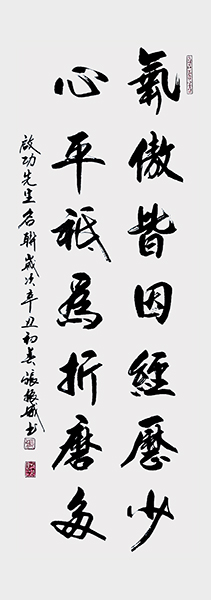 氣傲皆因經歷少
心平祗為折磨多
啟功先生名聯歲次辛丑初春張振城書